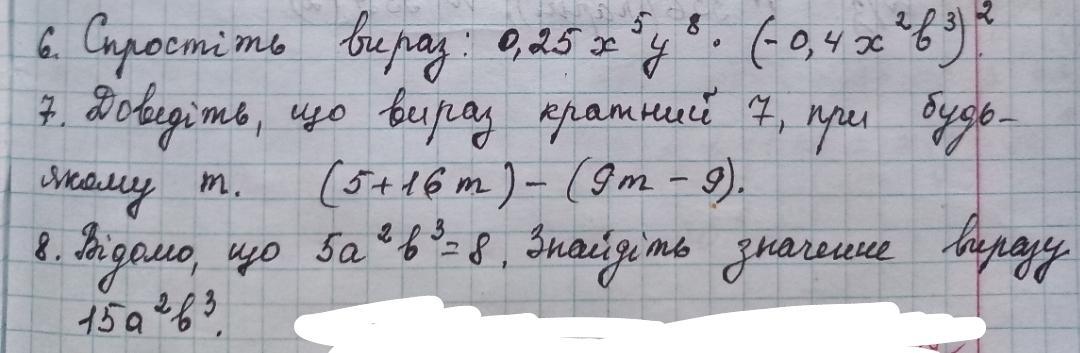 6. Спростіть вираз: 0,25x⁵y⁸ · (-0,4x²b³)².
7. Доведіть, що вираз кратний 7, при будь-
якому m. (5+16m)-(9m-9).
8. Відомо, що 5a²b³=8. Знайдіть значення виразу
15a²b³.